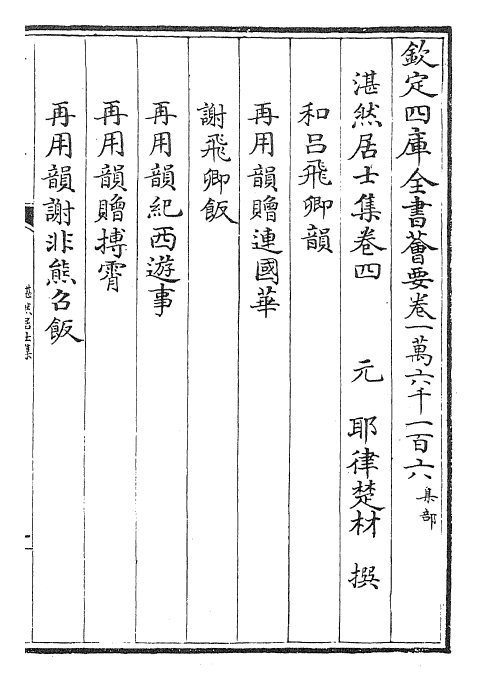 欽定四庫全書薈要卷一萬六千一百六 集部
湛然居士集卷四 元 耶律楚材 撰
和呂飛卿韻
再用韻贈連國華
謝飛卿飯
再用韻紀西遊事
再用韻贈搏霄
再用韻謝非熊召飯
湛然居士集